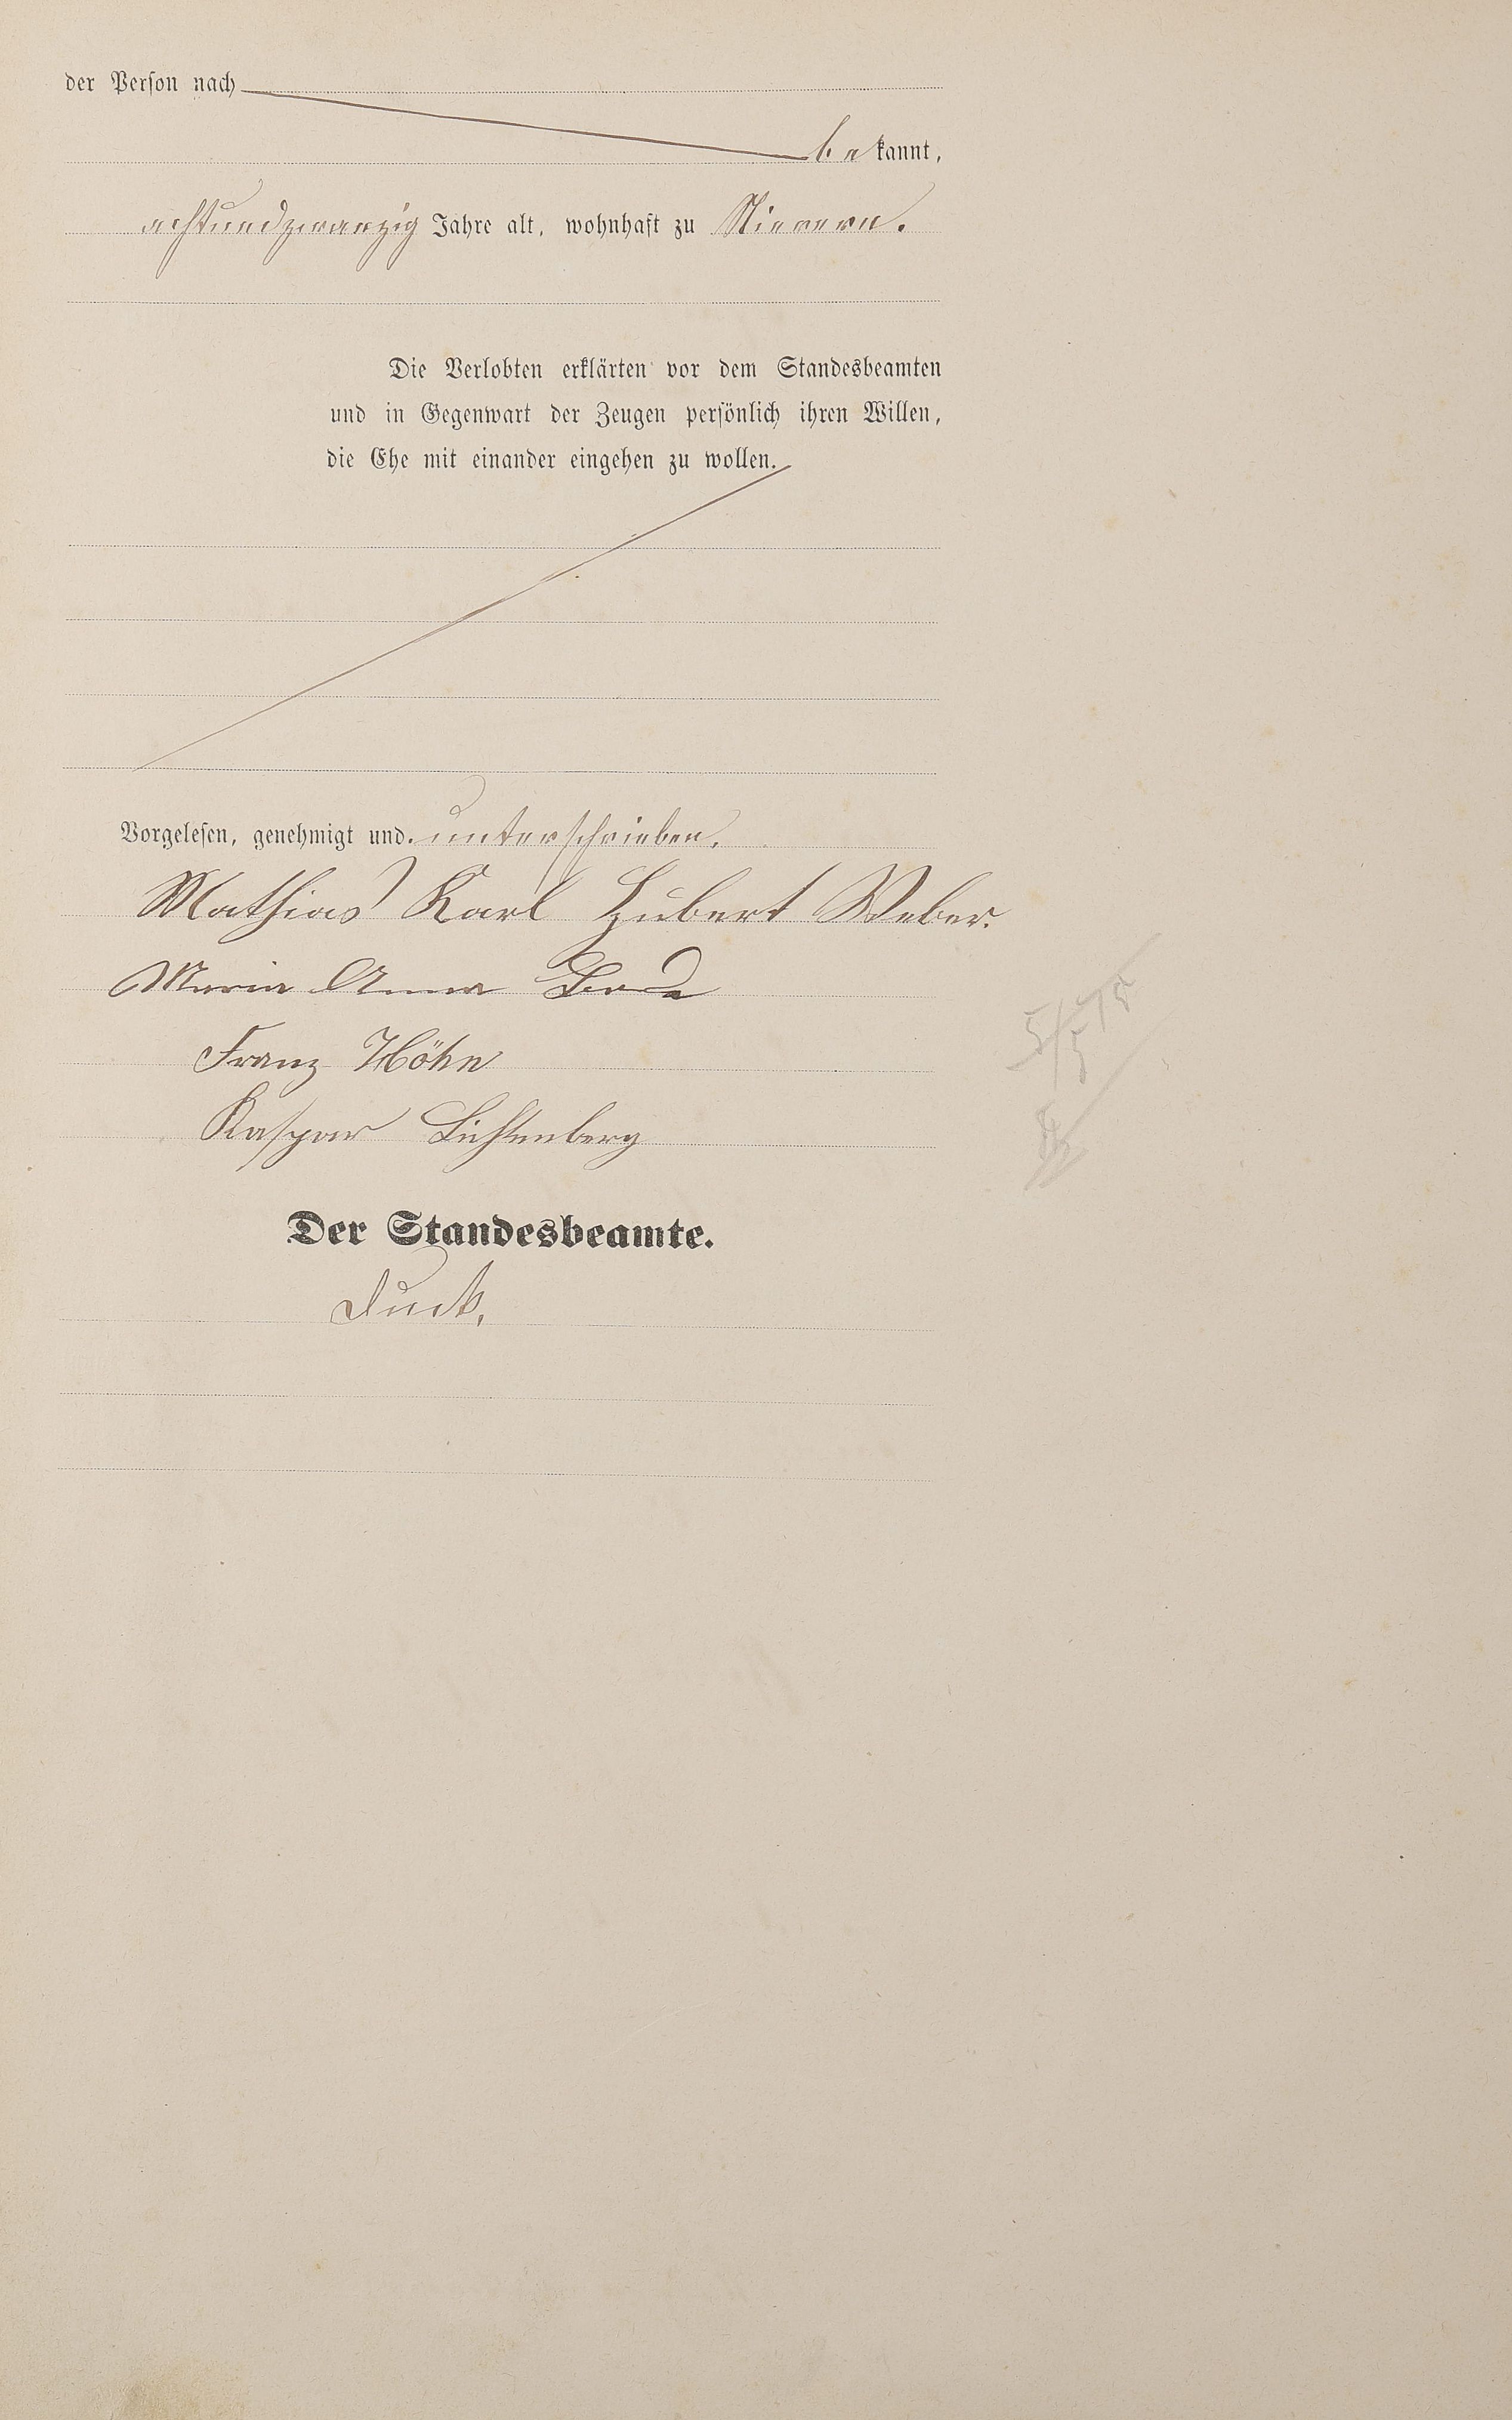 der Person nach
bekannt,
achtundzwanzig Jahre alt, wohnhaft zu Nievern.
Die Verlobten erklärten vor dem Standesbeamten
und in Gegenwart der Zeugen persönlich ihren Willen,
die Ehe mit einander eingehen zu wollen.
Vorgelesen, genehmigt und unterschrieben.
Mathias Karl Hubert Weber.
Maria Anna
Franz Höhn
Kaspar Lichtenberg
Der Standesbeamte.